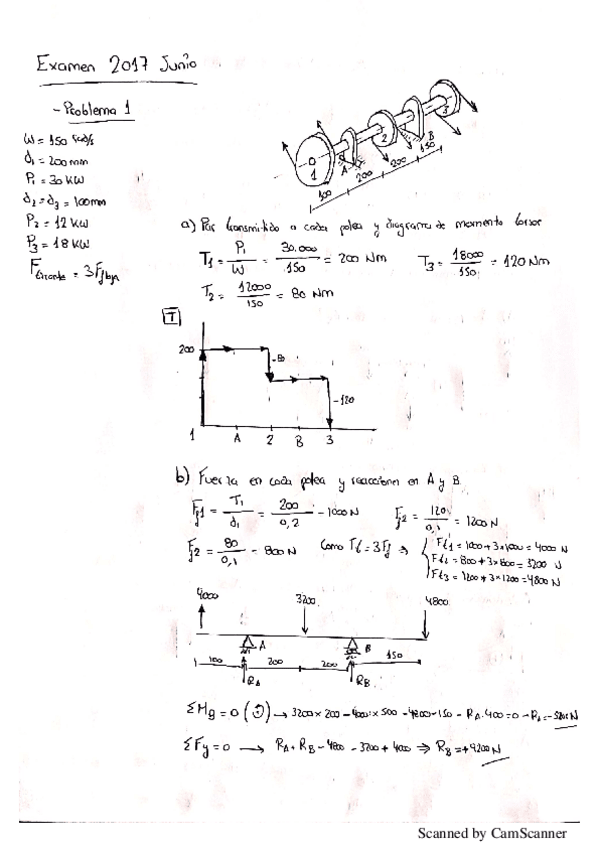 Examen 2017 Junio
- Problema 1
W = 150 rad/s
d1 = 200 mm
P1 = 30 KW
d2 = d3 = 100mm
P2 = 12 KW
P3 = 18 KW
Ftirante = 3 Ffloja
1
A
2
B
3
100
200
200
150
a) Par transmitido a cada polea y diagrama de momento torsor
T1 = P1/W = 30.000/150 = 200 Nm
T3 = 18000/150 = 120 Nm
T2 = 12000/150 = 80 Nm
T
200
-80
-120
1 A 2 B 3
b) Fuerza en cada polea y reacciones en A y B
Ff1 = T1/d1 = 200/0,2 - 1000 N
Ff2 = 120/0,1 = 1200 N
Ff2 = 80/0,1 = 800 N
Como Tt = 3Ff ⇒
Ft1 = 1000 + 3×1000 = 4000 N
Ft2 = 800 + 3×800 = 3200 N
Ft3 = 1200 + 3×1200 = 4800 N
4000
3200
4800
A
B
100
200
200
150
RA
RB
ΣMB = 0 → 3200×200 - 4000×500 - 4800·150 - RA·400 = 0 → RA = -5200 N
ΣFy = 0 → RA + RB - 4800 - 3200 + 4000 ⇒ RB = +9200 N
Scanned by CamScanner